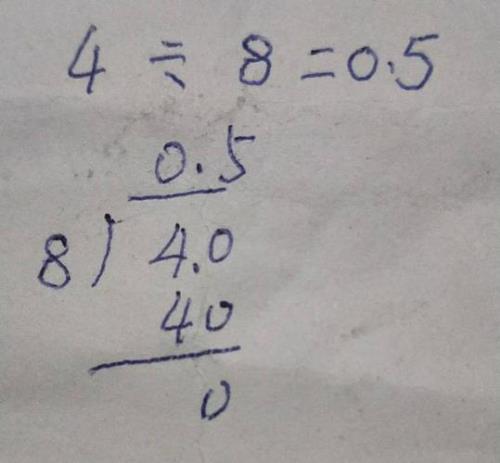 4 ÷ 8 = 0.5
0.5
8 ) 4.0
40
0